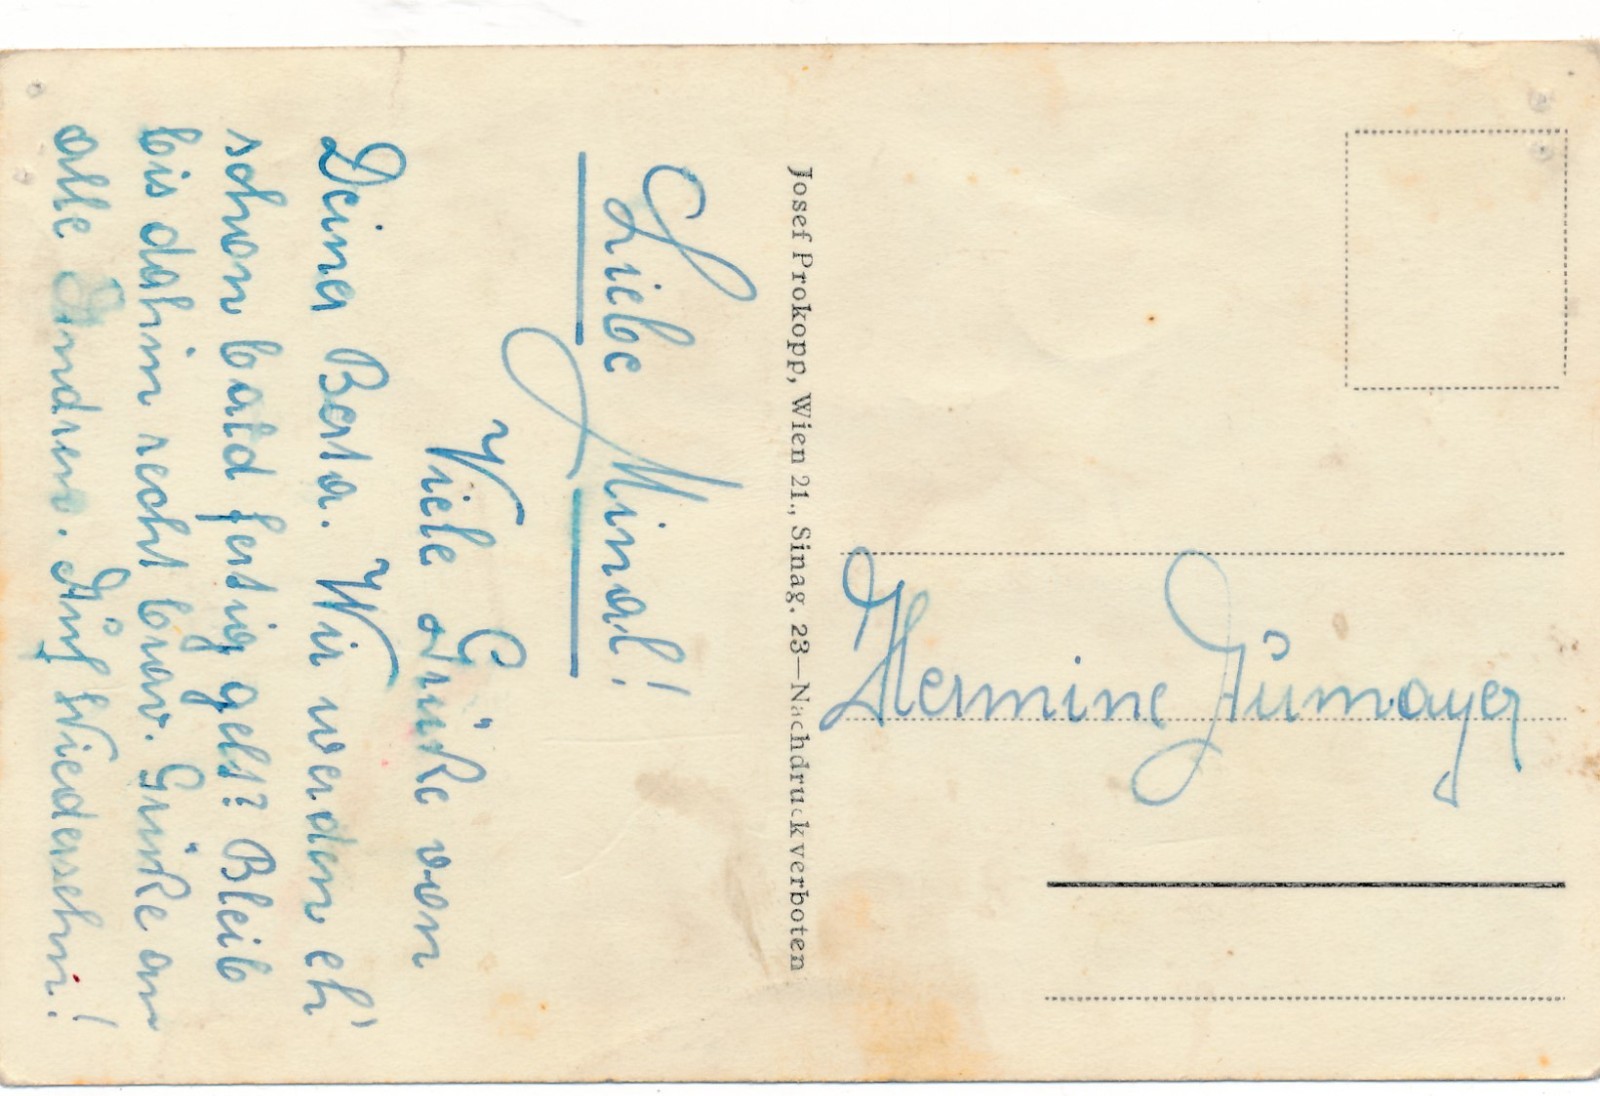 Liebe Minal!
Viele Grüße von
Deiner Berta. Wir werden eh'
schon bald fertig gelt? Bleib
bis dahin recht brav. Grüße an
alle Andren. Auf Wiedersehn!
Josef Prokopp, Wien 21., Sinag. 23—Nachdruck verboten
Hermine Jümayer